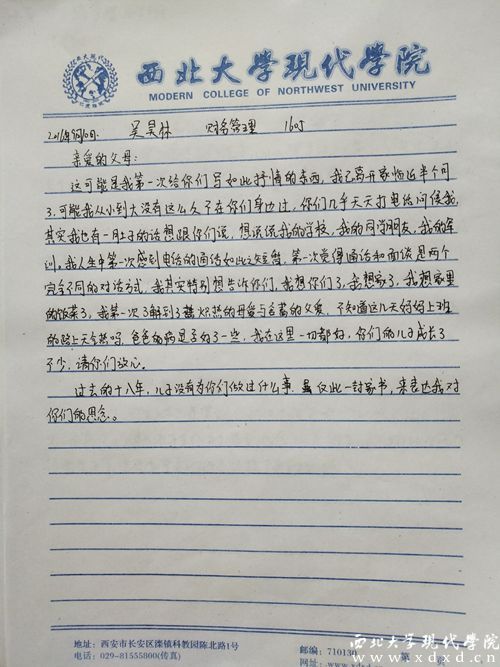 西北大学现代学院
MODERN COLLEGE OF NORTHWEST UNIVERSITY
吴昊林 财务管理 1605
亲爱的父母:
这可能是我第一次给你们写如此抒情的东西,我已离开家临近半个月
了,可能我从小到大没有这么久不在你们身边过,你们几乎天天打电话问候我,
其实我也有一肚子的话想跟你们说,想说说我的学校,我的同学朋友,我的军
训,我人生中第一次感到电话的通话如此之短暂,第一次觉得通话和面谈是两个
完全不同的对话方式,我其实特别想告诉你们,我想你们了,我想家了,我想家里
的饭菜了,我第一次了解到了炽热的母爱与含蓄的父爱,不知道这几天妈妈上班
的路上天冷热吗,爸爸的病是否好了一些,我在这里一切都好,你们的儿子成长了
不少,请你们放心。
过去的十八年,儿子没有为你们做过什么事,虽仅此一封家书,来表达我对
你们的思念。
地址:西安市长安区滦镇科教园陈北路1号
电话:029-81555800(传真)
邮编:71013
网址:www.
西北大学现代学院
www.xdxd.cn